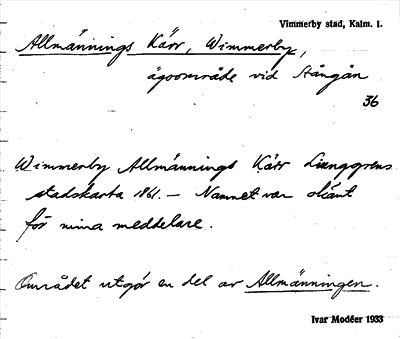 Vimmerby stad, Kalm. l.
Allmännings Kärr, Wimmerby,
ägoområde vid Stångån
36
Wimmerby Allmännings Kärr Ljunggrens
stadskarta 1861. – Namnet var okänt
för mina meddelare.
Området utgör en del av Allmänningen.
Ivar Modéer 1933